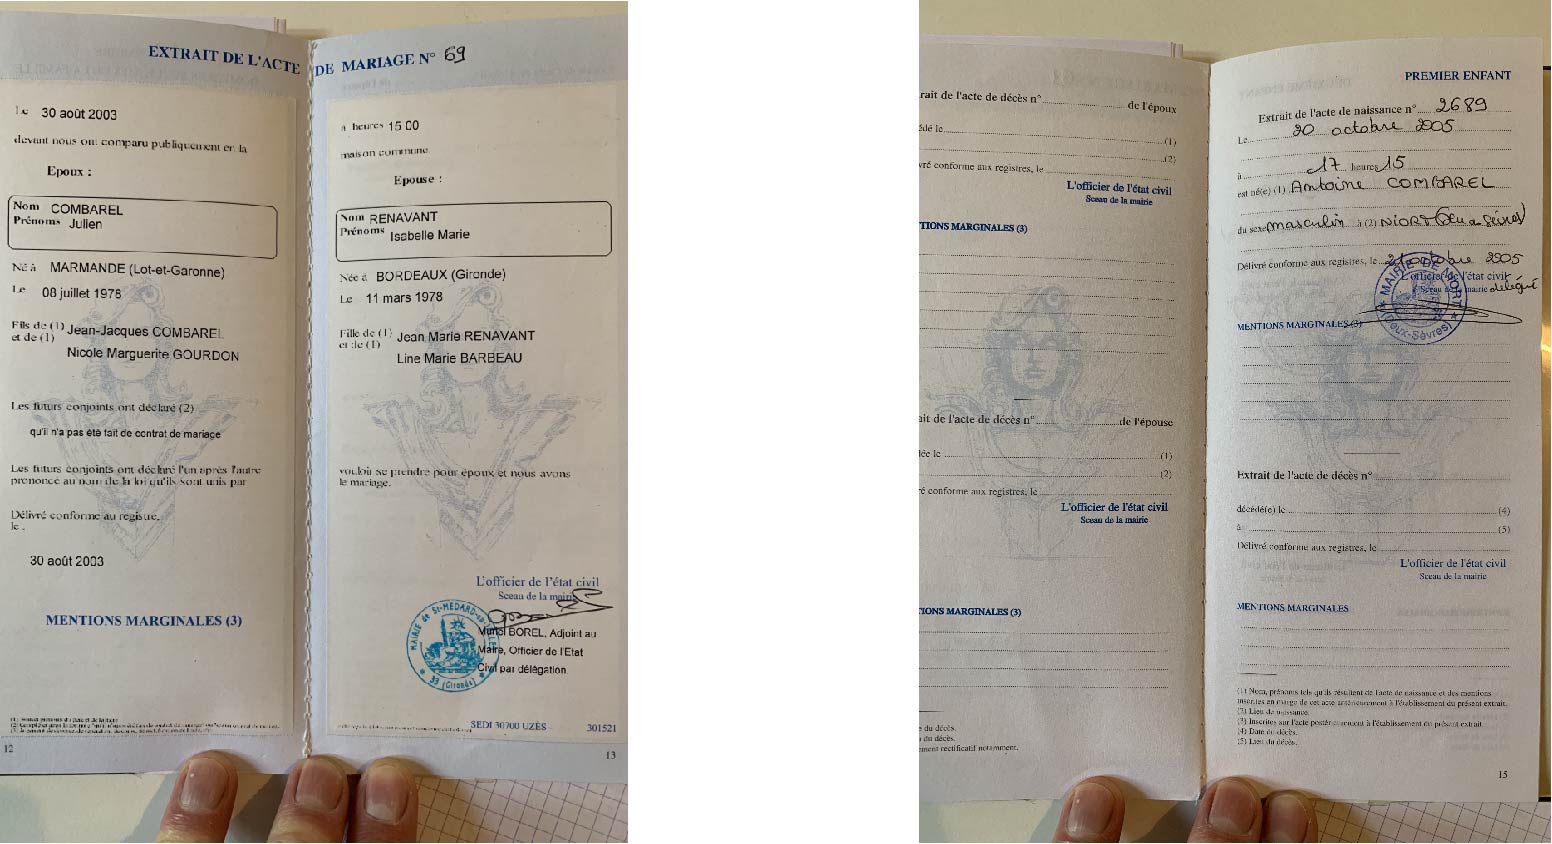 EXTRAIT DE L'ACTE
Le 30 août 2003
devant nous ont comparu publiquement en la
Epoux :
Nom COMBAREL
Prénoms Julien
Né à MARMANDE (Lot-et-Garonne)
Le 08 juillet 1978
Fils de (1) Jean-Jacques COMBAREL
et de (1)
Nicole Marguerite GOURDON
Les futurs conjoints ont déclaré (2)
qu'il n'a pas été fait de contrat de mariage
Les futurs conjoints ont déclaré l'un après l'autre
prononcé au nom de la loi qu'ils sont unis par
Délivré conforme au registre,
le .
30 août 2003
MENTIONS MARGINALES (3)
12
DE MARIAGE N° 69
à heures 15:00
maison commune
Epouse :
Nom RENAVANT
Prénoms Isabelle Marie
Née à BORDEAUX (Gironde)
Le 11 mars 1978
Fille de (1) Jean Marie RENAVANT
et de (1)
Line Marie BARBEAU
vouloir se prendre pour époux et nous avons
le mariage.
L'officier de l'état civil
Sceau de la mairie
BOREL, Adjoint au
Maire, Officier de l'Etat
Civil par délégation
MAIRIE de St-MEDARD
33 (Gironde)
SEDI 30700 UZÈS 301521
13
rait de l'acte de décès n° de l'époux
édé le (1)
(2)
vré conforme aux registres, le
L'officier de l'état civil
Sceau de la mairie
TIONS MARGINALES (3)
ait de l'acte de décès n° de l'épouse
ée le (1)
(2)
é conforme aux registres, le
L'officier de l'état civil
Sceau de la mairie
IONS MARGINALES (3)
e du décès.
du décès.
ement rectificatif notamment.
PREMIER ENFANT
Extrait de l'acte de naissance n° 2689
Le 20 octobre 2005
à 17 heures 15
est né(e) (1) Antoine COMBAREL
du sexe masculin à (2) NIORT (Deux Sèvres)
Délivré conforme aux registres, le 21 octobre 2005
L'officier de l'état civil
Sceau de la mairie délégué
MAIRIE DE NIORT
(Deux-Sèvres)
MENTIONS MARGINALES (3)
Extrait de l'acte de décès n°
décédé(e) le (4)
à (5)
Délivré conforme aux registres, le
L'officier de l'état civil
Sceau de la mairie
MENTIONS MARGINALES
(1) Nom, prénoms tels qu'ils résultent de l'acte de naissance et des mentions
inscrites en marge de cet acte antérieurement à l'établissement du présent extrait.
(2) Lieu de naissance.
(3) Inscrites sur l'acte postérieurement à l'établissement du présent extrait.
(4) Date de décès.
(5) Lieu du décès.
15